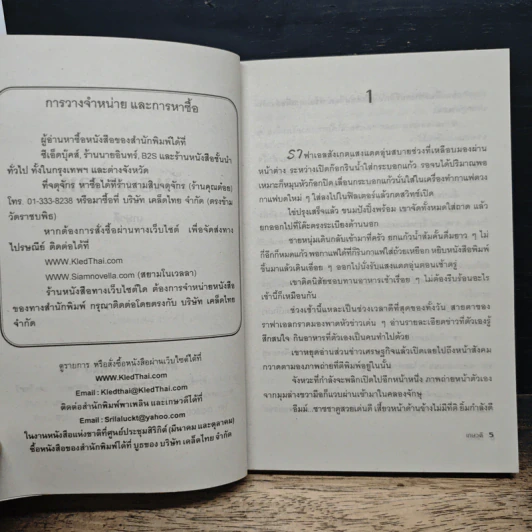 การวางจำหน่าย และการหาซื้อ
ผู้อ่านหาซื้อหนังสือของสำนักพิมพ์ได้ที่
ซีเอ็ดบุ๊คส์, ร้านนายอินทร์, B2S และร้านหนังสือชั้นนำ
ทั่วไป ทั้งในกรุงเทพฯ และต่างจังหวัด
ที่จตุจักร หาซื้อได้ที่ร้านสามสิบจตุจักร (ร้านคุณต้อย)
โทร. 01-333-8238 หรือมาซื้อที่ บริษัท เคล็ดไทย จำกัด (ตรงข้าม
วัดราชบพิธ)
หากต้องการสั่งซื้อผ่านทางเว็บไซต์ เพื่อจัดส่งทาง
ไปรษณีย์ ติดต่อได้ที่
WWW.KledThai.com
WWW.Siamnovella.com (สยามโนเวลลา)
ร้านหนังสือทางเว็บไซต์ใด ต้องการจำหน่ายหนังสือ
ของทางสำนักพิมพ์ กรุณาติดต่อโดยตรงกับ บริษัท เคล็ดไทย
จำกัด
ดูรายการ หรือสั่งซื้อหนังสือผ่านเว็บไซต์ได้ที่
WWW.KledThai.com
Email : Kledthai@KledThai.com
ติดต่อสำนักพิมพ์พาเพลิน และเกษวดีได้ที่
Email : Srilaluckt@yahoo.com
ในงานหนังสือแห่งชาติที่ศูนย์ประชุมสิริกิติ์ (มีนาคม และตุลาคม)
ซื้อหนังสือของสำนักพิมพ์ได้ที่ บูธของ บริษัท เคล็ดไทย จำกัด
1
ราฟาเอลสังเกตแสงแดดอุ่นสบายช่วงที่เหลือบมองผ่าน
หน้าต่าง ระหว่างเปิดก๊อกรินน้ำใส่กระบอกแก้ว รอจนได้ปริมาณพอ
เหมาะก็หมุนหัวก๊อกปิด เลื่อนกระบอกแก้วนั่นใส่เครื่องทำกาแฟ ตวง
กาแฟบดใหม่ ๆ ใส่ลงไปในฟิลเตอร์แล้วกดสวิทซ์เปิด
ไข่ปรุงเสร็จแล้ว ขนมปังปิ้งพร้อม เขาจัดทั้งหมดใส่ถาด แล้ว
ยกออกไปที่โต๊ะตรงระเบียงด้านนอก
ชายหนุ่มเดินกลับเข้ามาที่ครัว ยกแก้วน้ำส้มคั้นดื่มยาว ๆ ไม่
กี่อึกก็หมดแก้ว พอกาแฟได้ที่ก็รินกาแฟใส่ถ้วยเหยือก หยิบหนังสือพิมพ์
ขึ้นมาแล้วเดินเรื่อย ๆ ออกไปนั่งรับแสงแดดอุ่นตอนเช้าตรู่
เขาติดนิสัยชอบทานอาหารเช้าเรื่อย ๆ ไม่ต้องรีบร้อนอะไร
เช้านี้ก็เหมือนกัน
ช่วงเช้านี้แหละเป็นช่วงเวลาดีที่สุดของทั้งวัน สายตาของ
ราฟาเอลกวาดมองพาดหัวข่าวเด่น ๆ อ่านรายละเอียดข่าวที่ตัวเองรู้
สึกสนใจ กินอาหารที่ตัวเองเป็นคนทำไปด้วย
เขาหยุดอ่านส่วนข่าวเศรษฐกิจแล้วเปิดเลยไปถึงหน้าสังคม
กวาดตามองภาพถ่ายที่ตีพิมพ์อยู่ในนั้น
จังหวะที่กำลังจะพลิกเปิดไปอีกหน้าหนึ่ง ภาพถ่ายหน้าตัวเอง
จากมุมล่างขวามือก็แวบผ่านเข้ามาในคลองจักษุ
อืมม์..ชาชชาดูสวยเด่นดี เสี้ยวหน้าด้านข้างไม่มีที่ติ ยิ้มกำลังดี
เกษวดี 5